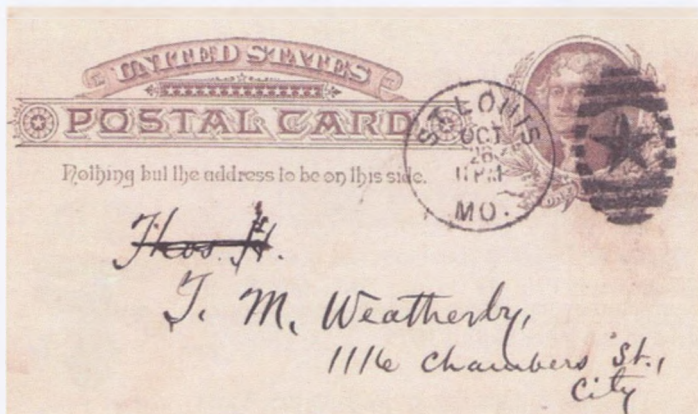 UNITED STATES
POSTAL CARD
Nothing but the address to be on this side.
ST. LOUIS
OCT
26
11 PM
MO.
Thos. H.
T. M. Weatherby,
1116 Chambers St.,
City